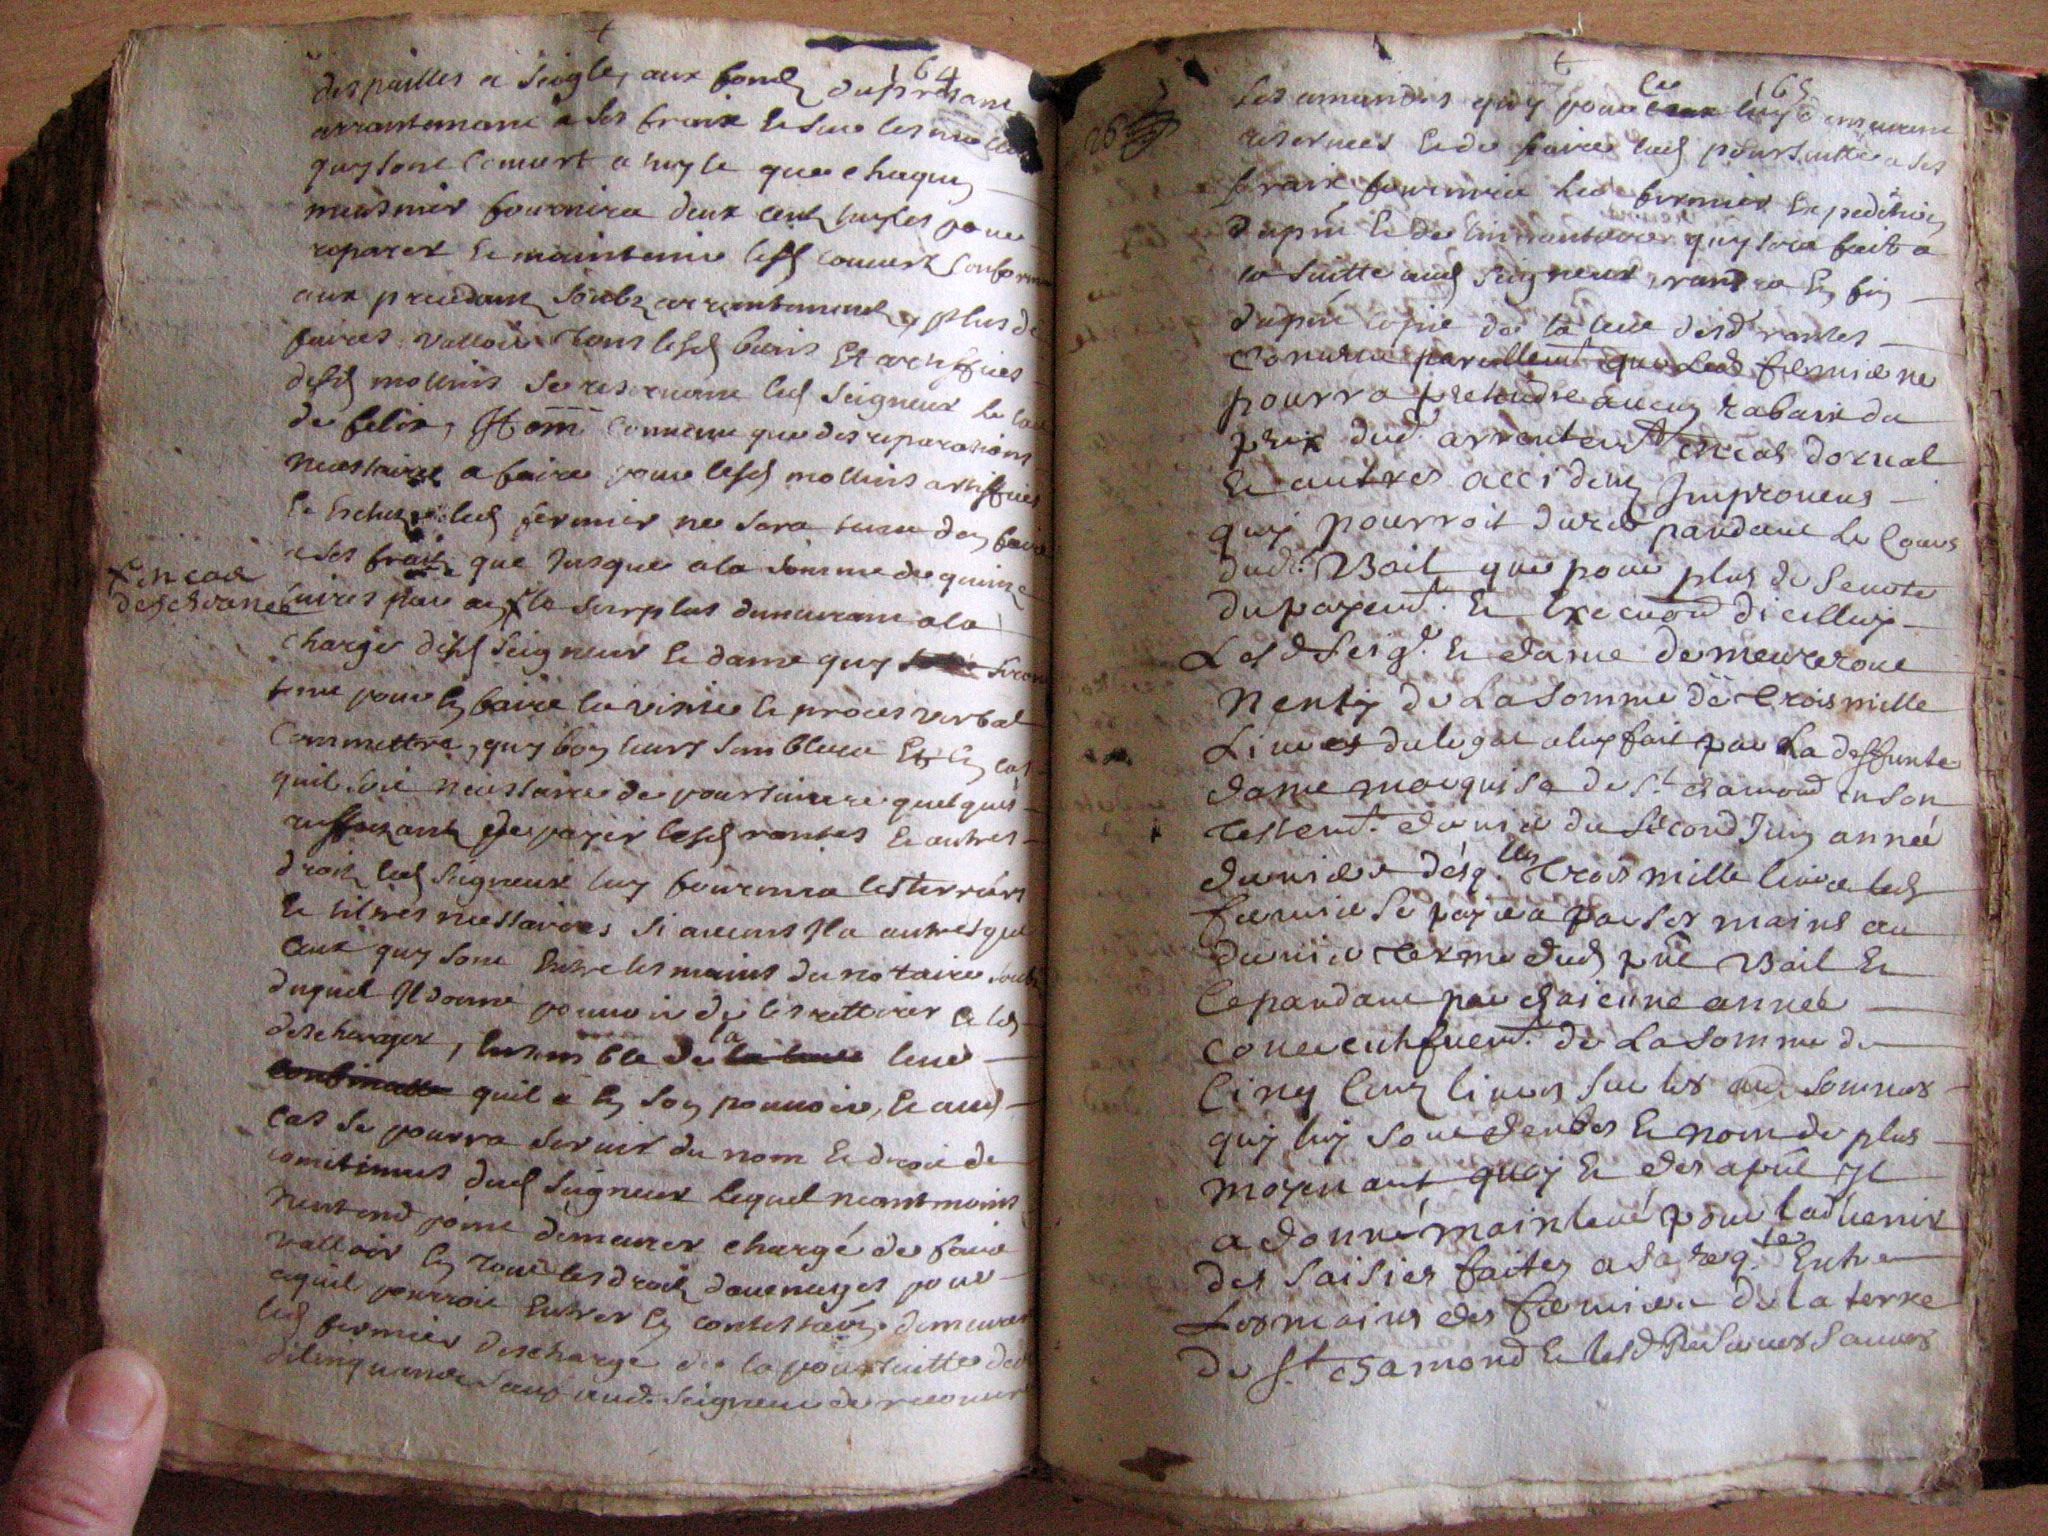 164
des pailles a seigle, aux fondz du present
arrantemant a ses fraix et sur les
quy sont couvert a tuyle que chaque
meusnier fournira deux centz tuyles pour
reparer et maintenir lesd couvertz conform
aux precedantz soubz arrantementz, plus de
faires valloir tous lesd biens et artiffices
desd mollins se reservant led seigneur le
de felin, Item convenu que des reparations
necessaire a faire pour lesd mollins artiffices
et led fermier ne sera tenu den faire
a ses fraix que jusque a la somme de quinze
livres par an le surplus demeurant a la
x en cas
descheance
charge desd seigneur et dame quy seront
tenu pour en faire la visite et proces verbal
commettre, quy bon leurs semblera et en cas
quil soit necessaire de poursuivre quelques
reffuzantz de payer lesd rantes et autres
droitz led seigneur luy fournira les terriers
et tiltres necessaires si aucuns Il a autres que
ceux quy sont entre les mains du notaire soubz
duquel Il donne pouvoir de les rettirer et les
descharger, ensemble de la leve
quil a en son pouvoir, et aud
cas se pourra servir du nom et droit de
comitimus dud seigneur lequel neantmoins
nentend point demeurer chargé de faire
valloir en tout les droitz davenages pour
aquil pourroit entrer en contestaon demeurer
led fermier deschargé de la poursuitte des
delinquants sauf aud. seigneur de recouvrer
165
les amandes quy pour luy demeurent
reservees et de faire lad poursuitte a ses
fraix fournira led fermier expedition
du pnt et de linvantaire quy sera fait a
la suitte aud seigneur, randra en fin
du pnt copie de la leve desd rantes
Convenu pareillemt que led fermier ne
pourra pretendre aucun rabaix du
prix dud. arrentemt en cas dorval
et autres accidentz Improveus
quy pourroit durer pandant le cours
dud. Bail que pour plus de seurté
du payemt. et execuon dicelluy
Lesd seigr. et dame demeureront
Nenty de La somme de trois mille
Livres du legat a luy fait par La deffunte
dame marquise de St. chamond en son
testemt. dernier du second Juin année
derniere desq.lles trois mille livres led
fermier se payera par ses mains au
dernier terme dud pnt Bail et
cepandant par chacune année
consecutifvemt. de La somme de
cinq centz livres sur les sommes
quy luy sont deubes et non de plus
moyenant quoy et des apnt Il
a donné mainlevé pour ladvenir
des saisies faites a sa reqte. entre
Les mains des fermiers de la terre
de St. chamond et lesd